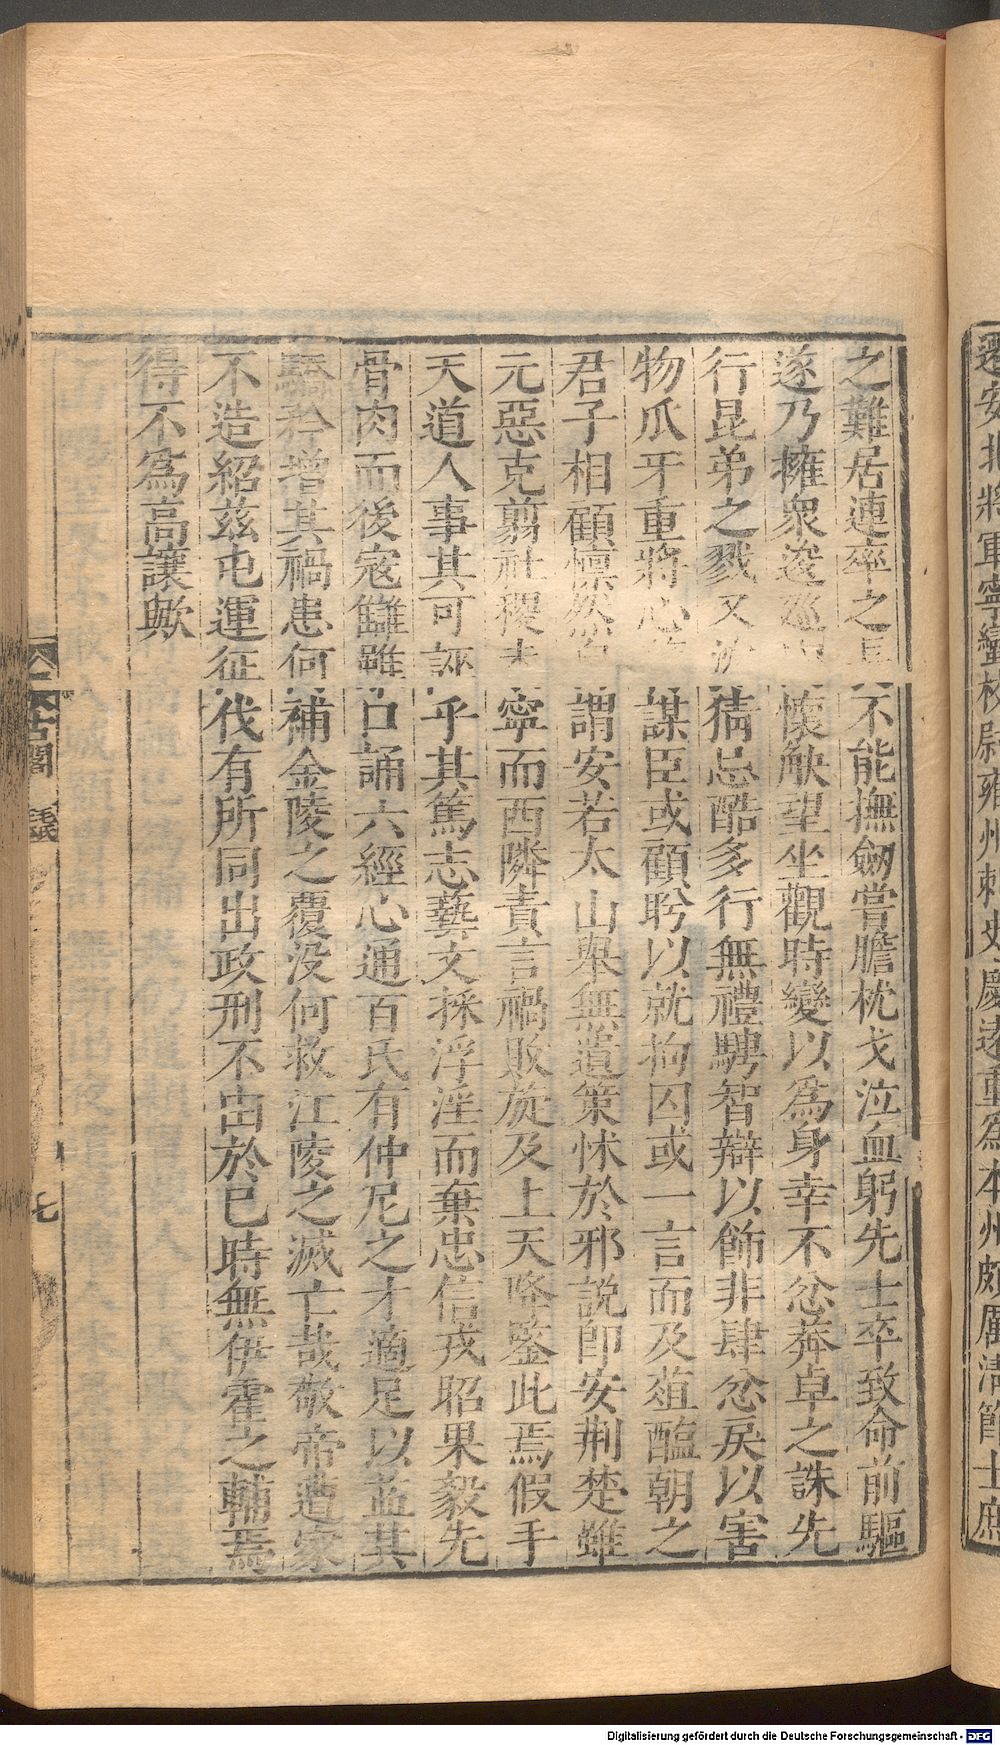 遷安北將軍寧蠻校尉雍州刺史慶遠重爲本州頗厲清節士庶
之難居連率之 不能撫劒嘗膽枕戈泣血躬先士卒致命前驅
遂乃擁衆逡巡 懷觖望坐觀時變以爲身幸不忿莽卓之誅先
行昆弟之戮又沈猜忌酷多行無禮騁智辯以飾非肆忿戾以害
物爪牙重將心 謀臣或顧眄以就拘囚或一言而及葅醢朝之
君子相顧懔然 謂安若太山舉無遺策怵於邪説即安荆楚雖
元惡克剪社稷未寧而西隣責言禍敗旋及上天降鑒此焉假手
天道人事其可誣乎其篤志藝文採浮淫而棄忠信戎昭果毅先
骨肉而後寇讎雖口誦六經心通百氏有仲尼之才適足以益其
驕矜增其禍患何補金陵之覆没何救江陵之滅亡哉敬帝遭家
不造紹兹屯運征伐有所同出政刑不由於已時無伊霍之輔焉
得不爲高讓歟
古閣
毛氏
七
Digitalisierung gefördert durch die Deutsche Forschungsgemeinschaft - DFG